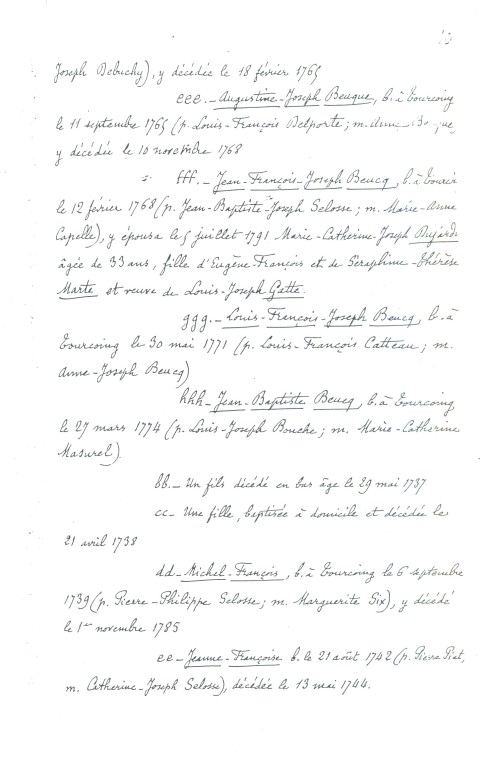 Joseph Debuchy), y décédée le 18 février 1765
eee.- Augustine-Joseph Beuque, b. à Tourcoing
le 11 septembre 1765 (p. Louis-François Delporte; m. Anne
y décédée le 10 novembre 1768
fff.- Jean-François-Joseph Beucq, b. à
le 12 février 1768 (p. Jean-Baptiste-Joseph Selosse; m. Marie-Anne
Capelle), y épousa le 5 juillet 1791 Marie-Catherine-Joseph
âgée de 33 ans, fille d'Eugène-François et de Séraphine-Thérèse
Marte et veuve de Louis-Joseph Gatte.
ggg.- Louis-François-Joseph Beucq, b. à
Tourcoing le 30 mai 1771 (p. Louis-François Catteau; m.
Anne-Joseph Beucq)
hhh- Jean-Baptiste Beucq, b. à Tourcoing
le 27 mars 1774 (p. Louis-Joseph Bouche; m. Marie-Catherine
Masurel)
bb.- Un fils décédé en bas âge le 29 mai 1737
cc- Une fille, baptisée à domicile et décédée le
21 avril 1738
dd- Michel-François, b. à Tourcoing le 6 septembre
1739 (p. Pierre-Philippe Selosse; m. Marguerite Six), y décédé
le 1er novembre 1785
ee- Jeanne-Françoise b. le 21 août 1742 (p. Pierre Piat,
m. Catherine-Joseph Selosse), décédée le 13 mai 1744.